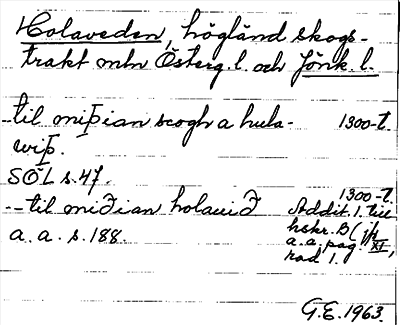 Holaveden, högländ skogs-
trakt mln Österg. l. och Jönk. l.
--til miþian scogh a hula- 1300-t.
wiþ.
SOL s. 47.
--til miðian holauið 1300-t.
a. a. s. 188. Addit. 1. till
hskr. B (
a. a. pag. XI,
rad 1.
G.E. 1963.